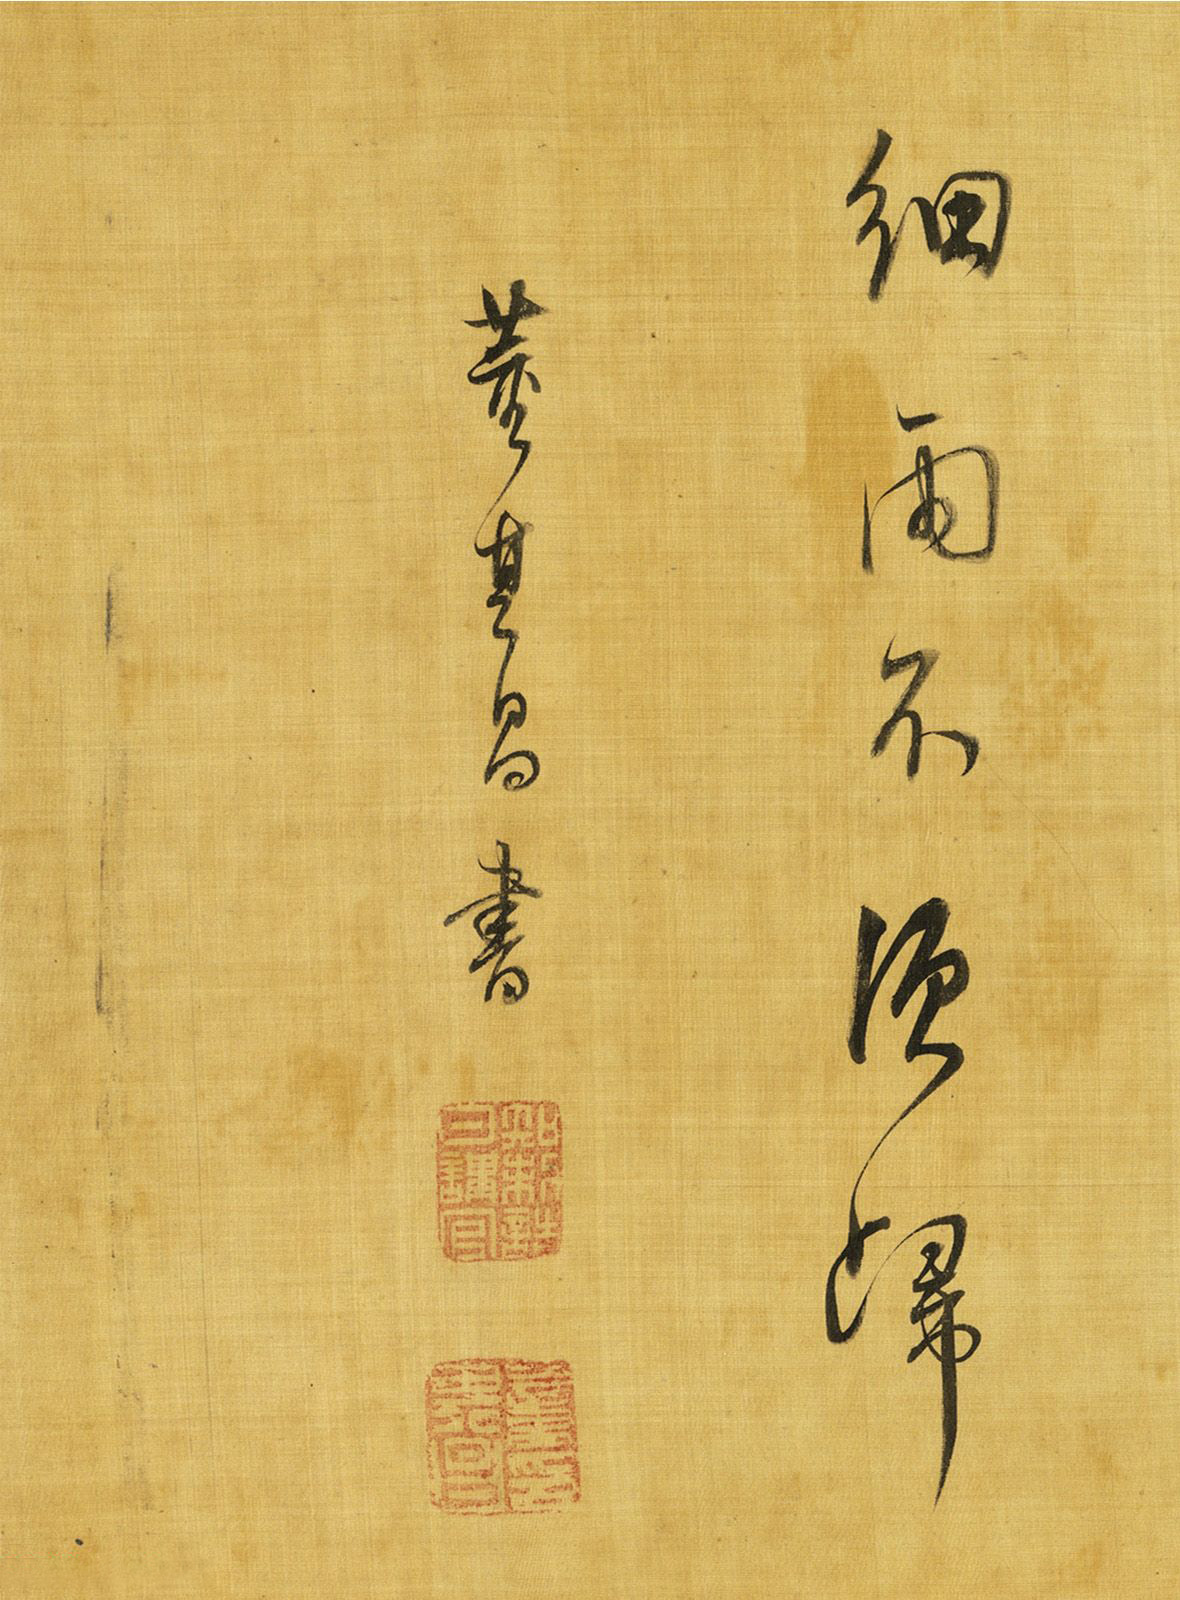 細雨不須歸
董其昌書